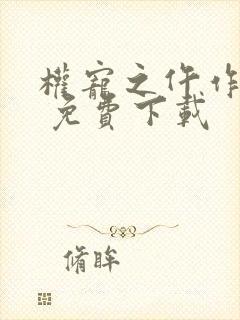 權寵之仵作
免費下載
脩眸